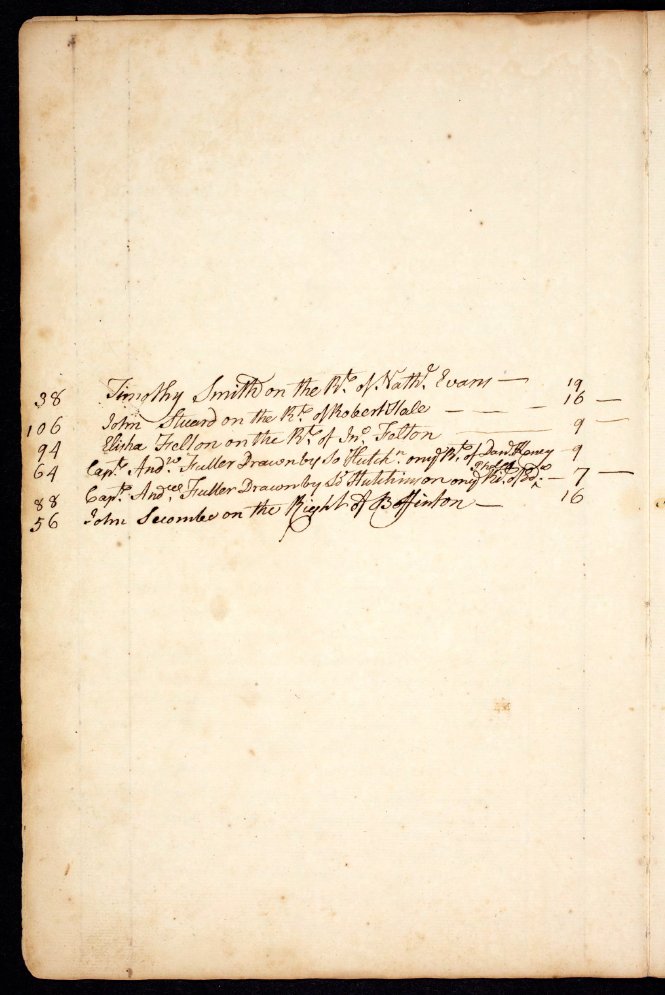 38 Timothy Smith on the Rt. of Nathl. Evans — 19
106 John Stuard on the Rt. of Robert Hale — — — 16 —
94 Elisha Felton on the Rt. of Jno. Felton — 9 —
64 Capt. Andw. Fuller Drawn by Jo Hutchn. on ye Rt. of Danl. — 9
88 Capt. Andrew Fuller Drawn by Jo Hutchinson on ye Rt. of — 7 —
56 John Secombe on the Right of Boffinton — 16